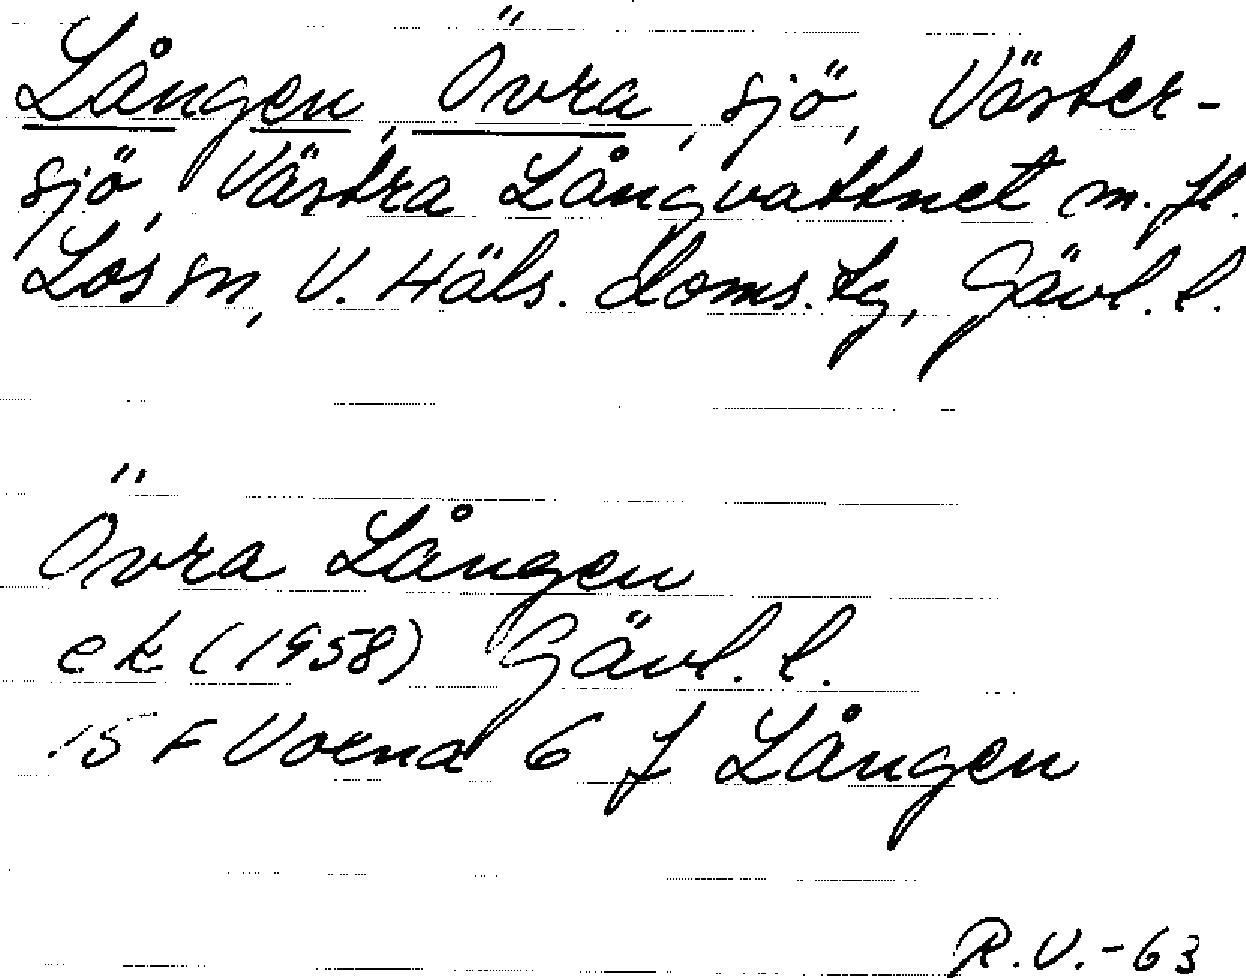 Lången, Övra, sjö, Väster-
sjö, Västra Långvattnet m. fl.
Los sn, V. Häls. doms. tg, Gävl. l.
Övra Lången
ek (1958) Gävl. l.
15 F Voxna 6 f Lången
R.V.-63